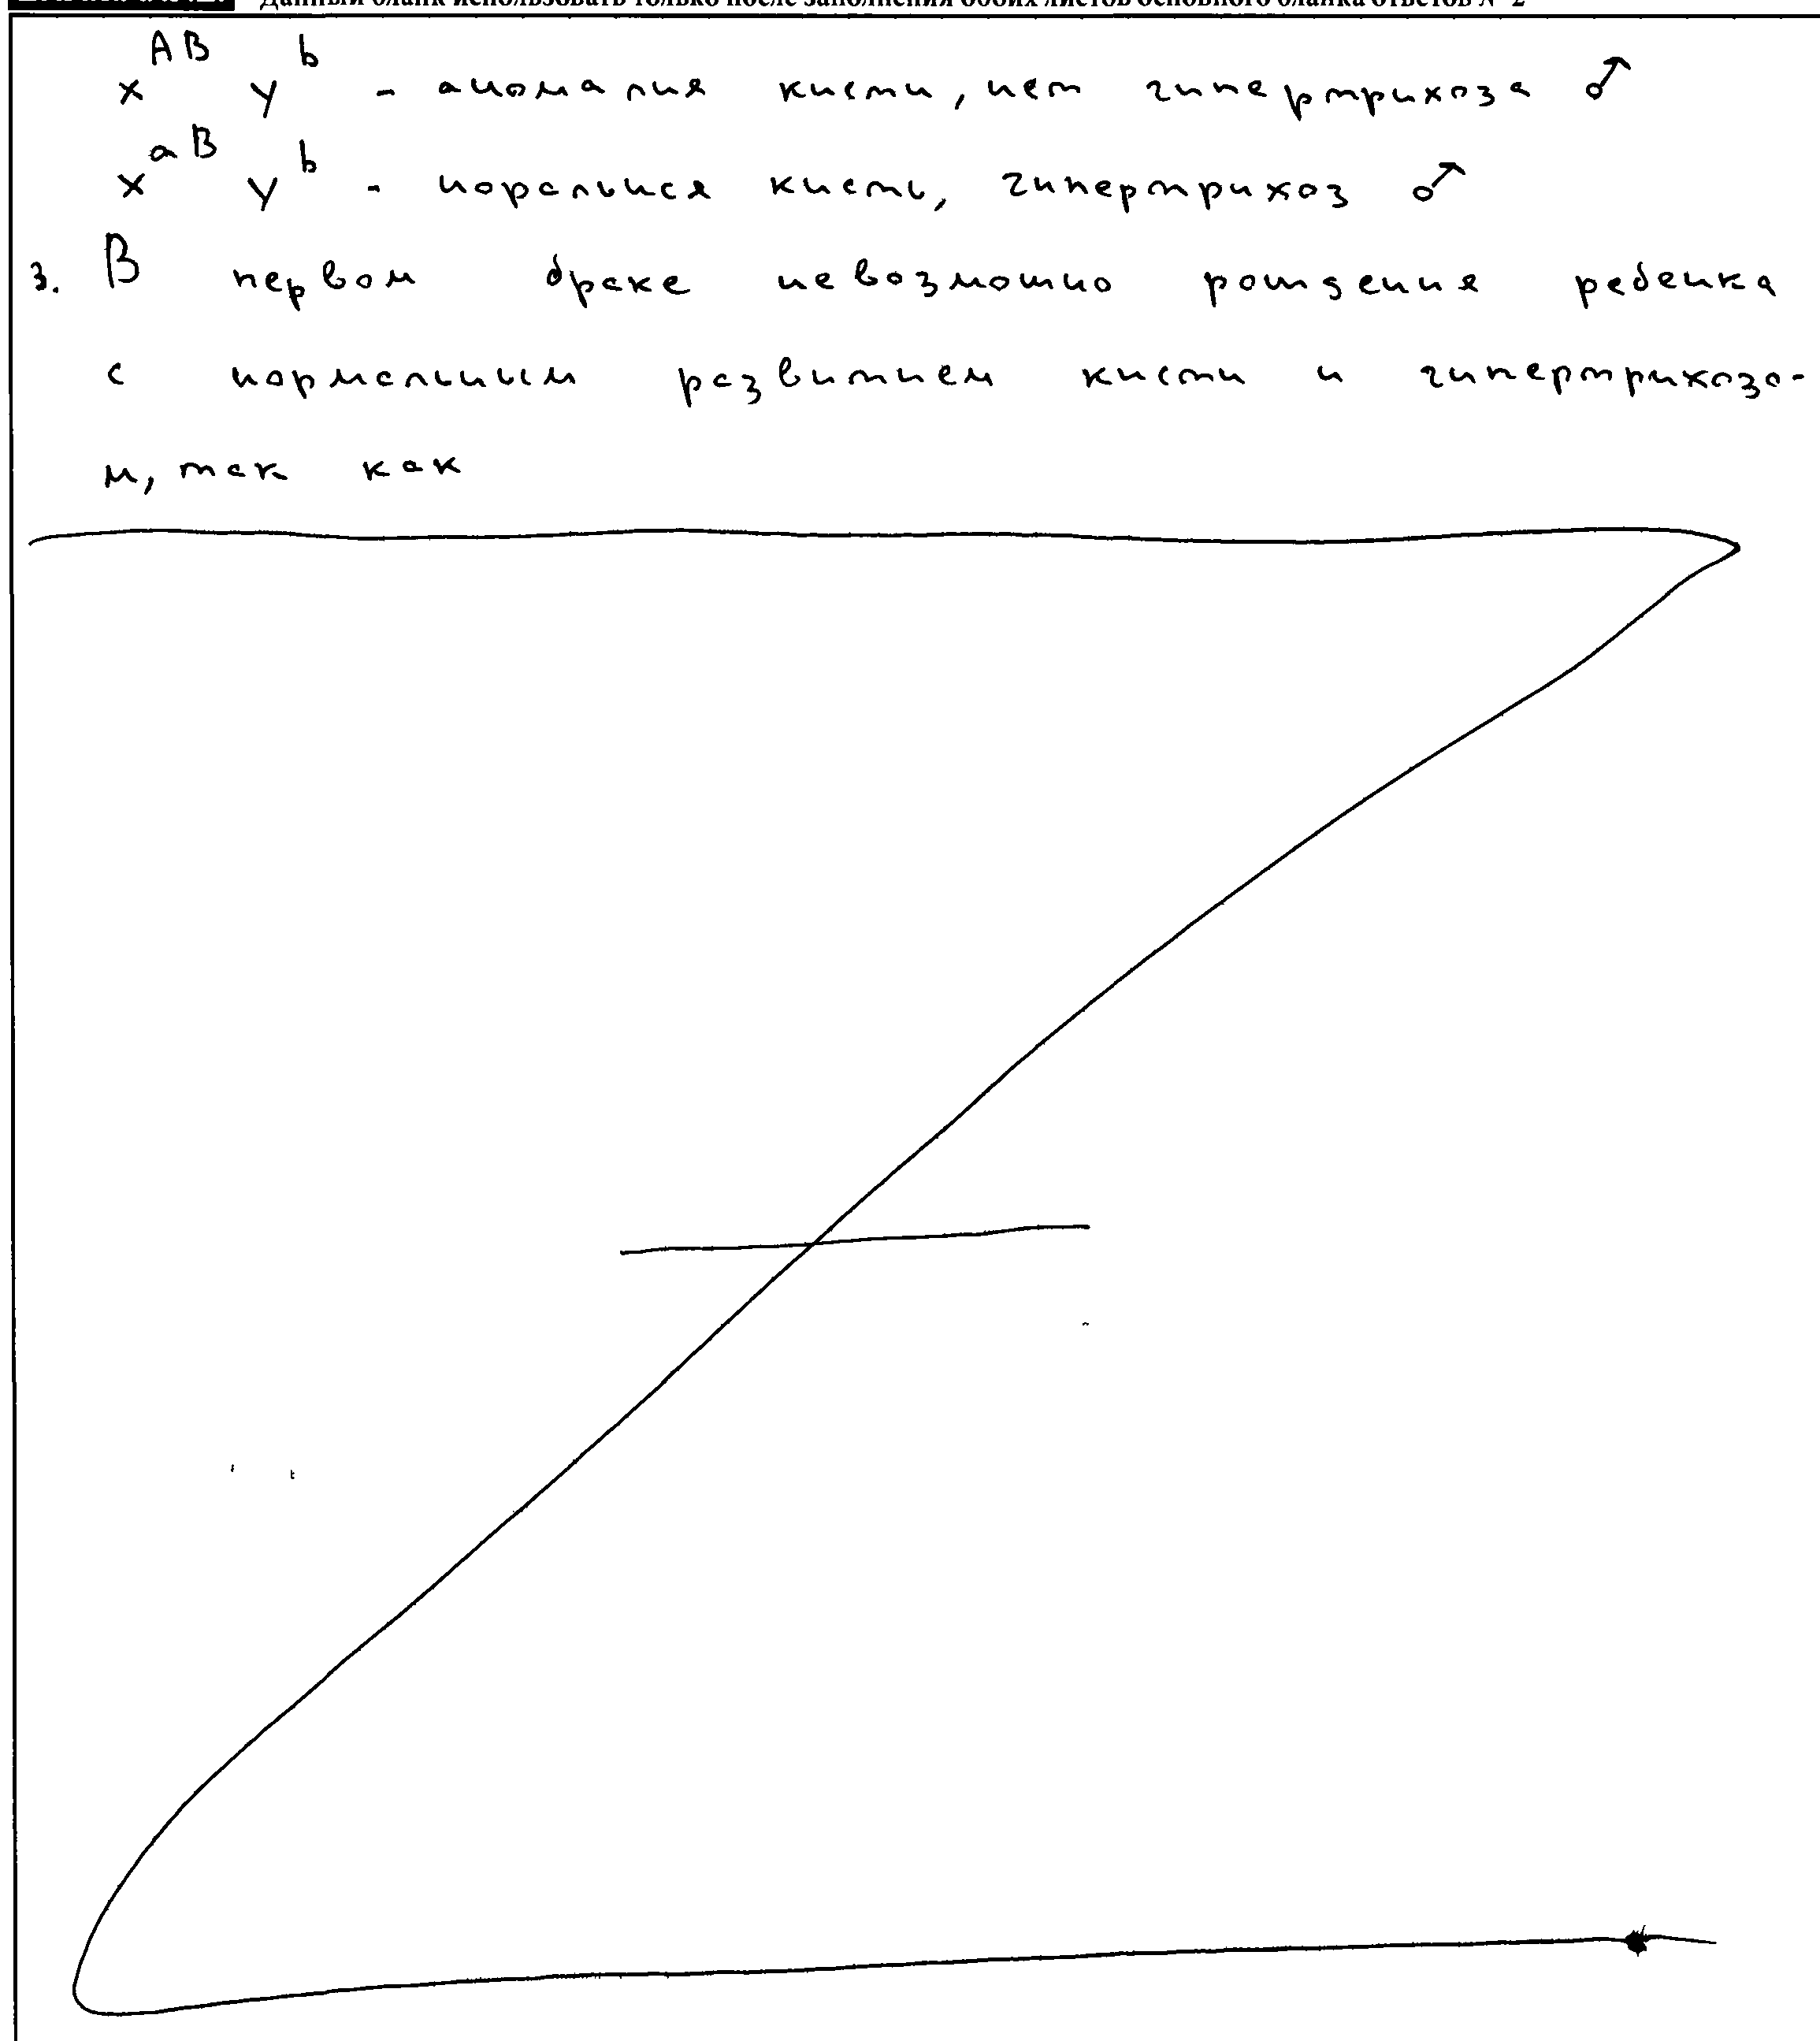 Данный бланк использовать только после заполнения обоих листов основного бланка ответов № 2
x^AB y^b - аномалия кисти, нет гипертрихоза ♂
x^aB y^b - норальная кисть, гипертрихоз ♂
3. В первом браке невозможно рождения ребенка
с нормальным развитием кисти и гипертрихозо-
м, так как